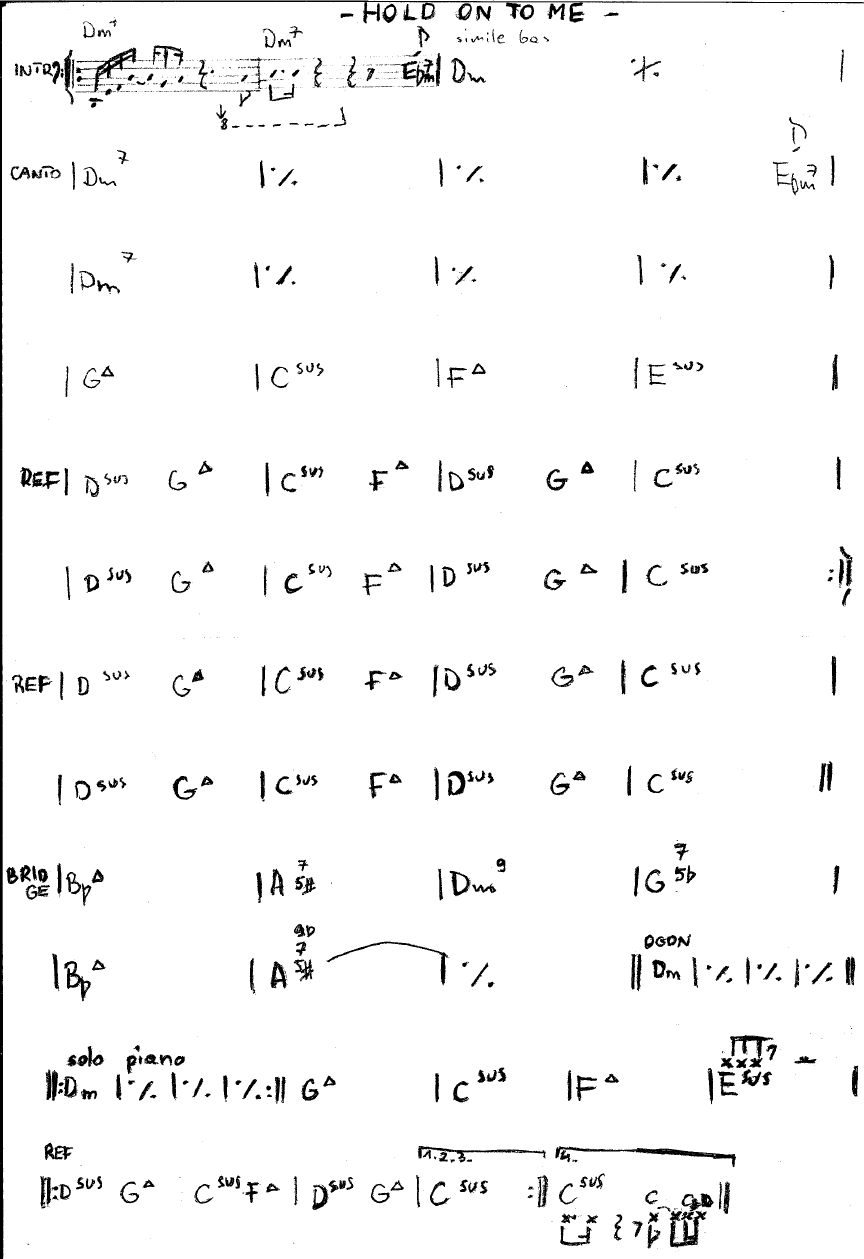 - HOLD ON TO ME -
Dm7 Dm7 simile bas
INTRO: Ebm7 | Dm ٪ |
CANTO | Dm7 | ٪ | ٪ | ٪ Ebm7 |
| Dm7 | ٪ | ٪ | ٪ |
| G△ | C sus | F△ | E sus |
REF | D sus G△ | C sus F△ | D sus G△ | C sus |
| D sus G△ | C sus F△ | D sus G△ | C sus :||
REF | D sus G△ | C sus F△ | D sus G△ | C sus |
| D sus G△ | C sus F△ | D sus G△ | C sus ||
BRIDGE | Bb△ | A 7 5# | Dm 9 | G 7 5b |
| Bb△ | A 9b 7 5# | ٪ || Dm | ٪ | ٪ | ٪ ||
solo piano
||: Dm | ٪ | ٪ | ٪ :|| G△ | C sus | F△ | E sus |
REF 1.2.3. 4.
||: D sus G△ C sus F△ | D sus G△ | C sus :|| C sus C ||